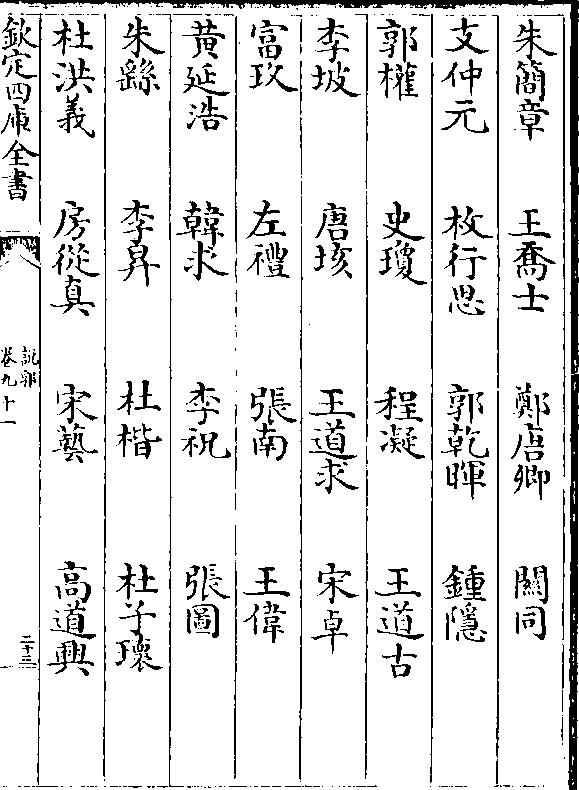 朱簡章 王喬士 鄭唐卿 關同
支仲元 枚行思 郭乾暉 鍾隱
郭權 史瓊 程凝 王道古
李坡 唐垓 王道求 宋卓
富玫 左禮 張南 王偉
黃延浩 韓求 李祝 張圖
朱繇 李昇 杜楷 杜子瓌
杜洪義 房從真 宋藝 高道興
欽定四庫全書
說郛
卷九十一
二十三